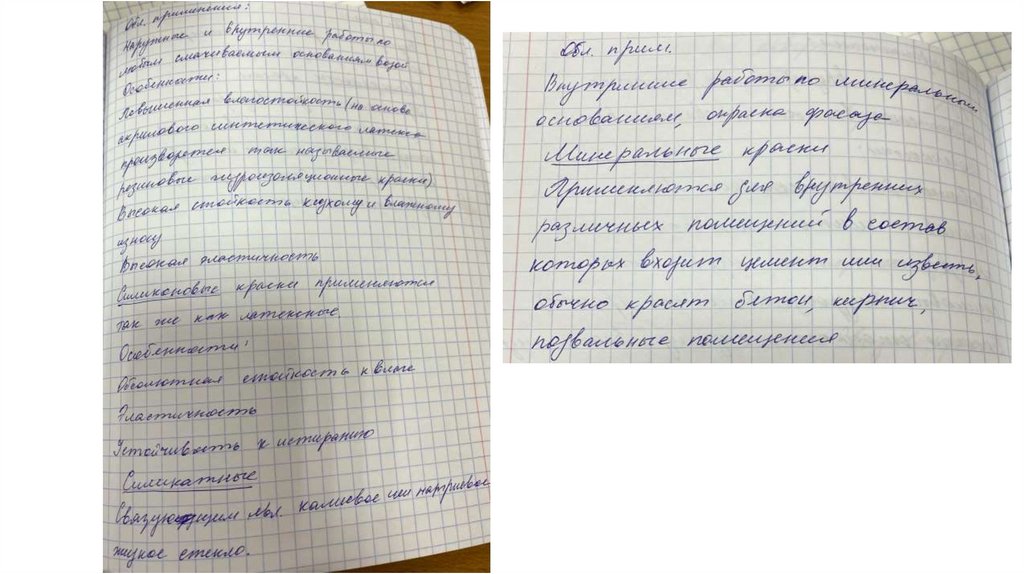 Обл. применения:
Наружные и внутренние работы по
любым смачиваемым основаниям водой
Особенности:
Повышенная влагостойкость (на основе
акрилового синтетического латекса
производятся так называемые
резиновые гидроизоляционные краски)
Высокая стойкость к сухому и влажному
износу
Высокая эластичность
Силиконовые краски применяются
так же как латексные.
Особенности:
Обсолютная стойкость к влаге
Эластичность
Устойчивость к истиранию
Силикатные
Связующим явл. калиевое или натриевое
жидкое стекло.
Обл. прим.
Внутренние работы по минеральным
основаниям, окраска фасада
Минеральные краски
Применяются для внутренних
различных помещений в состав
которых входит цемент или известь,
обычно красят бетон, кирпич,
подвальные помещения